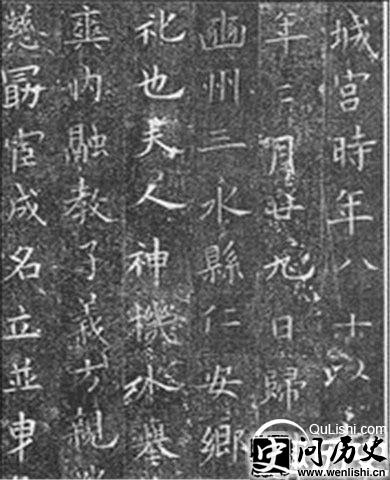 城宫時年八十以
年二月廿九日歸
豳州三水縣仁安鄉
礼也夫人神機
爽内融教子義方親
慈 宦成名立並申
QuLishi.com
史问历史
www.wenlishi.cn